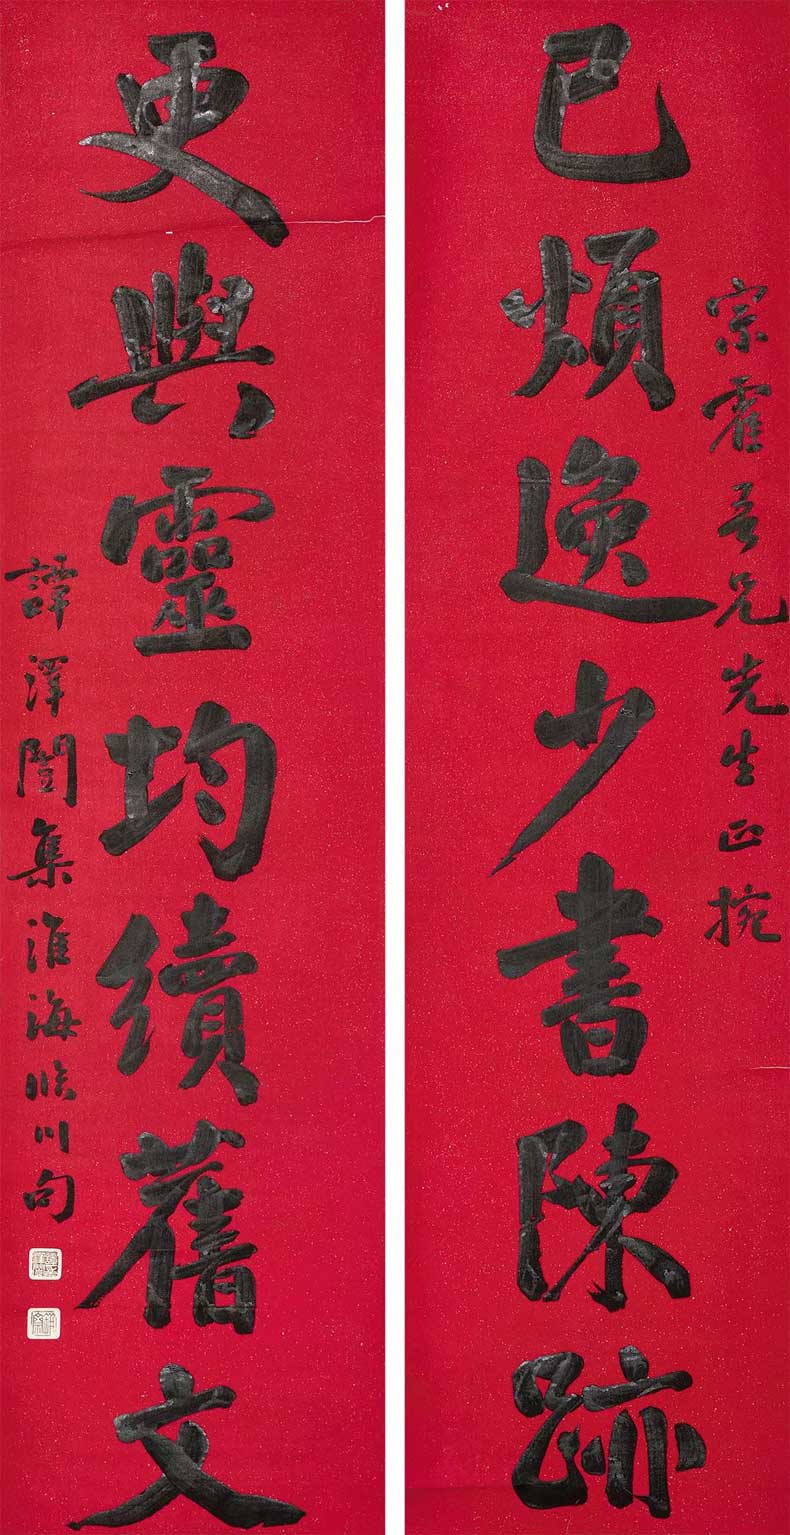 已煩逸少書陳跡
宗霍吾兄先生正捥
更與靈均續舊文
譚澤闓集淮海臨川句